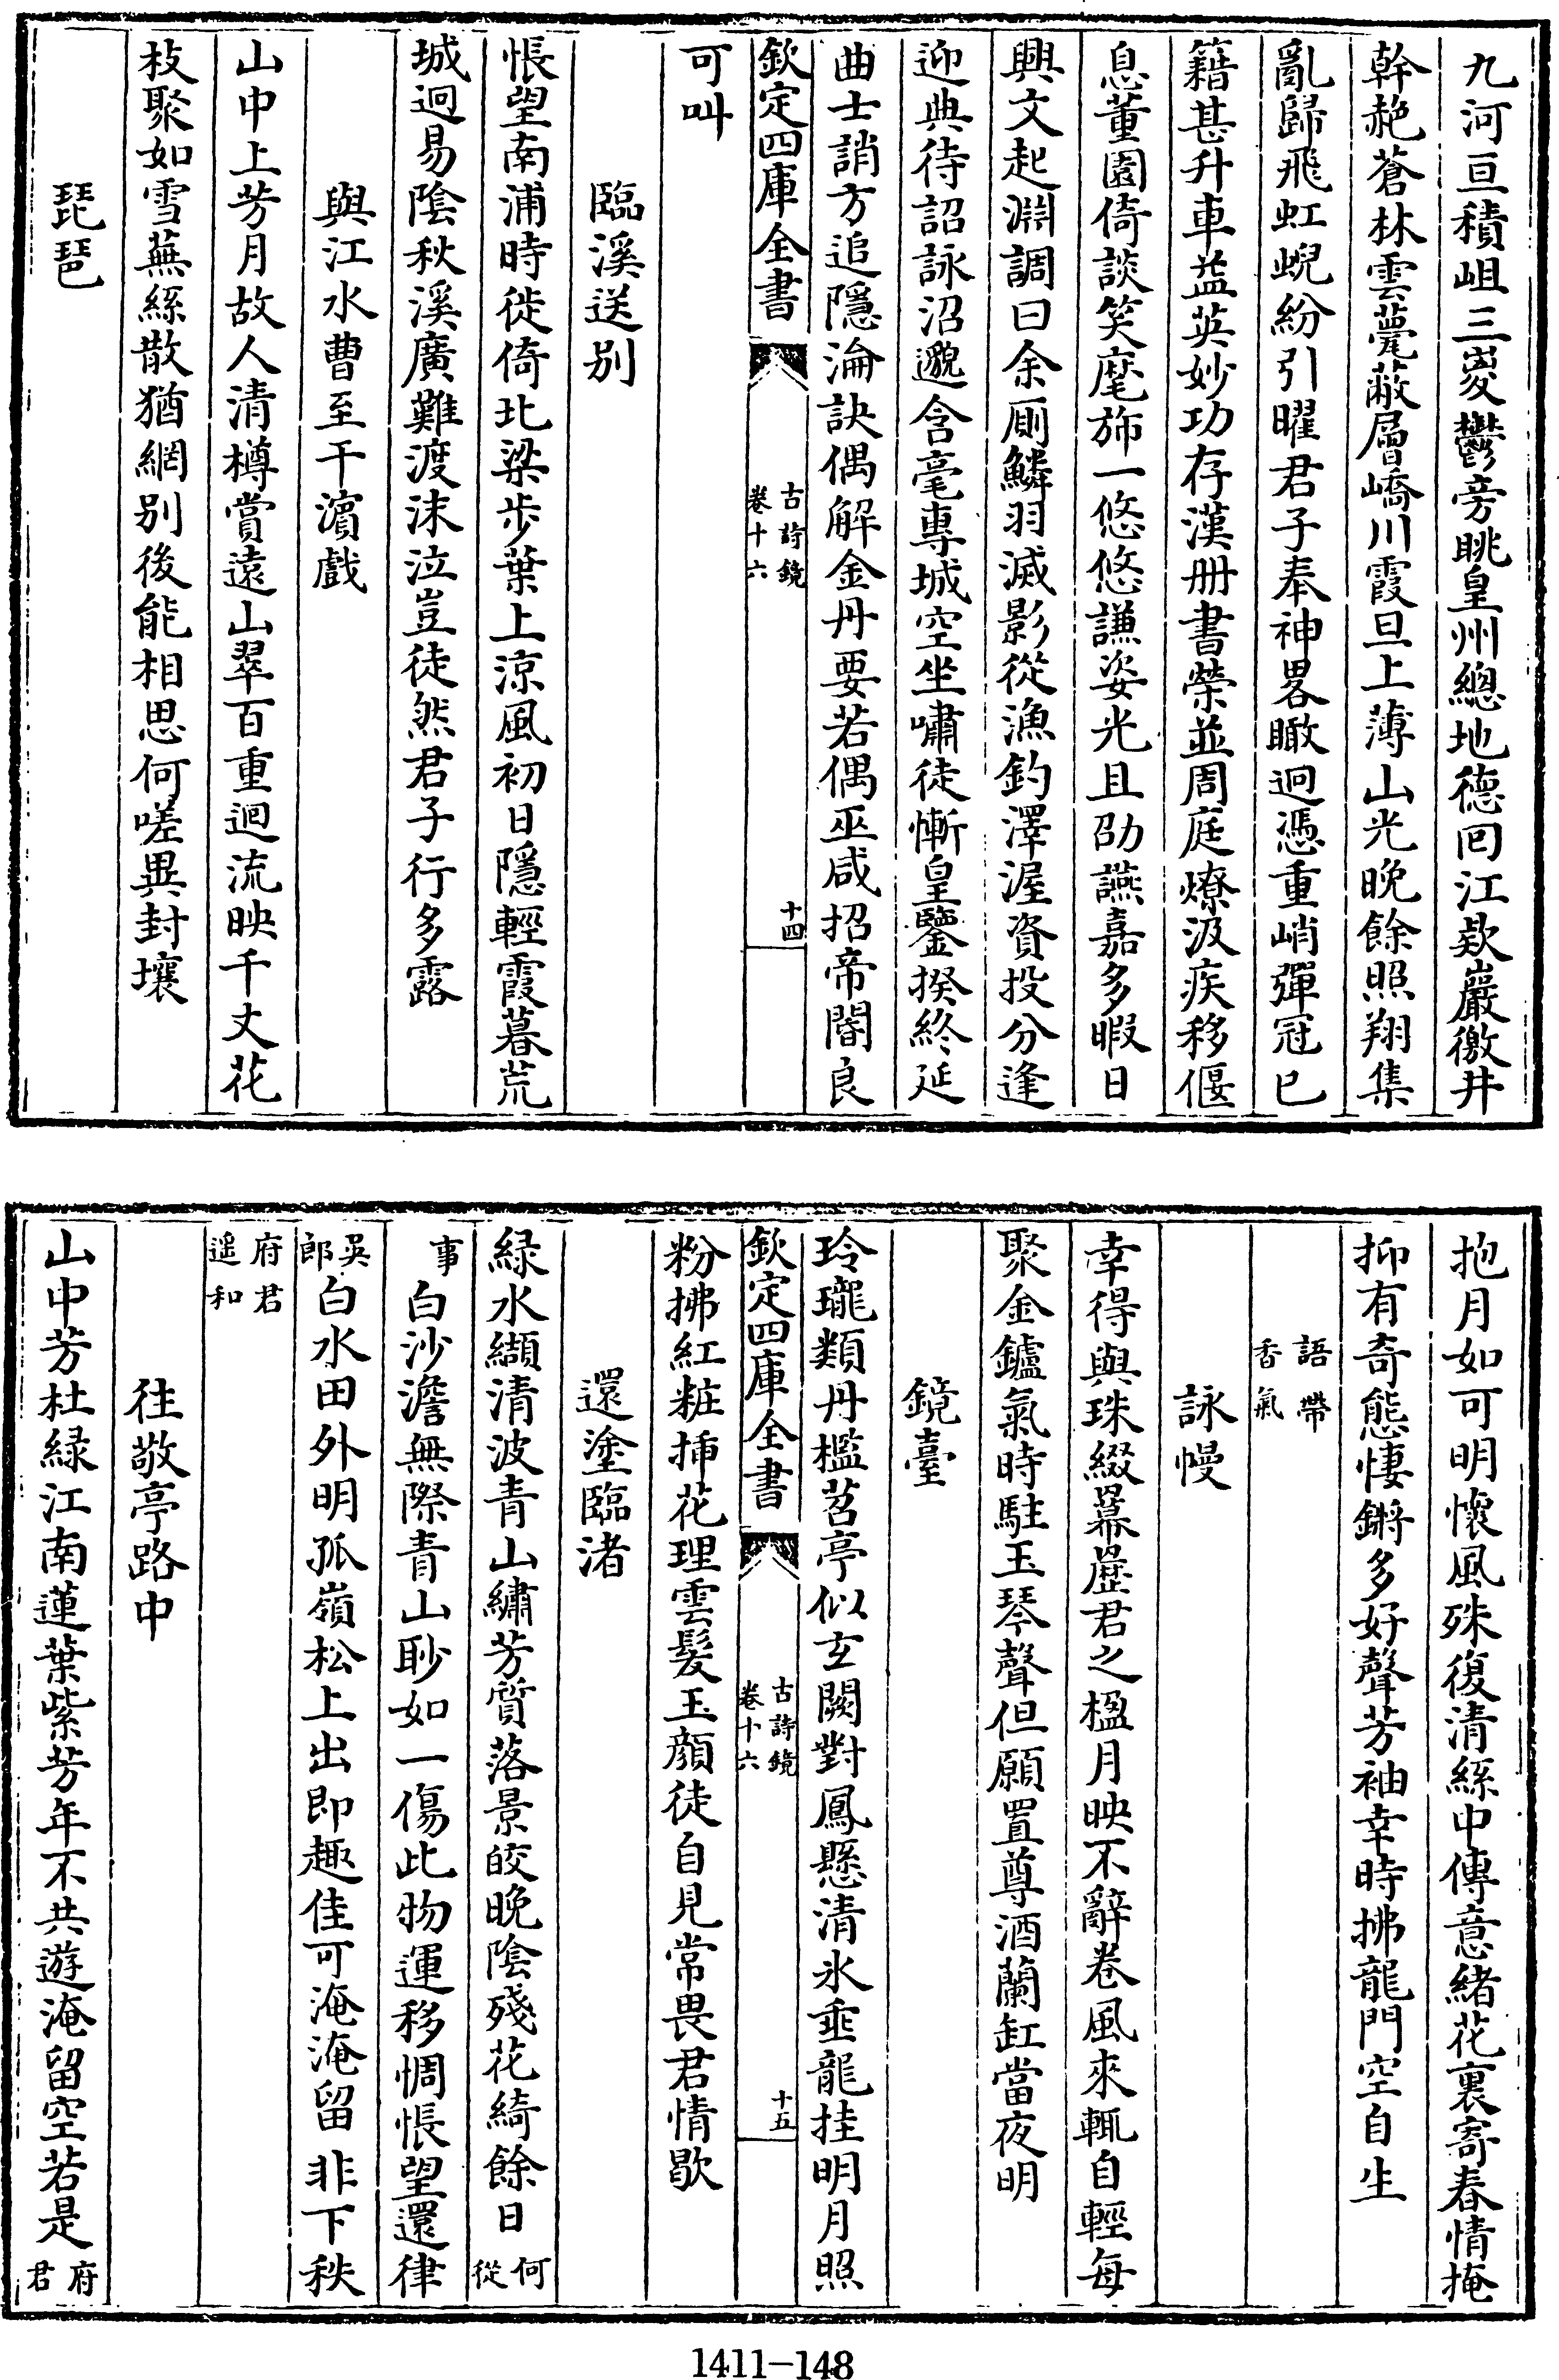 九河亘積岨三嵏鬱旁眺皇州總地德回江欵巖徼井
幹赩蒼林雲甍蔽層嶠川霞旦上薄山光晚餘照翔集
亂歸飛虹蜺紛引曜君子奉神畧瞰迥憑重峭彈冠已
籍甚升車益英妙功存漢册書榮並周庭燎汲疾移偃
息董園倚談笑麾斾一悠悠謙姿光且劭讌嘉多暇日
興文起淵調曰余厠鱗羽滅影從漁釣澤渥資投分逢
迎典待詔詠沼邈含毫專城空坐嘯徒慚皇鑒揆終延
曲士誚方追隱淪訣偶解金丹要若偶巫咸招帝閽良
欽定四庫全書 古詩鏡 卷十六 十四
可叫
臨溪送别
悵望南浦時徙倚北梁步葉上涼風初日隱輕霞暮荒
城迥易陰秋溪廣難渡沫泣豈徒然君子行多露
與江水曹至干濵戲
山中上芳月故人清樽賞遠山翠百重迴流映千丈花
枝聚如雪蕪絲散猶網别後能相思何嗟異封壤
琵琶
抱月如可明懷風殊復清絲中傳意緒花裏寄春情掩
抑有奇態悽鏘多好聲芳袖幸時拂龍門空自生
語帶香氣
詠幔
幸得與珠綴羃歷君之楹月映不辭卷風來輒自輕每
聚金鑪氣時駐玉琴聲但願置尊酒蘭缸當夜明
鏡臺
玲瓏類丹檻苕亭似玄闕對鳳懸清氷垂龍挂明月照
欽定四庫全書 古詩鏡 卷十六 十五
粉拂紅粧挿花理雲髮玉顔徒自見常畏君情歇
還塗臨渚
緑水纈清波青山繡芳質落景皎晚陰殘花綺餘日何從
事白沙澹無際青山眇如一傷此物運移惆悵望還律
吳郎白水田外明孤嶺松上出即趣佳可淹淹留非下秩
府君遥和
往敬亭路中
山中芳杜緑江南蓮葉紫芳年不共遊淹留空若是府君
1411-148